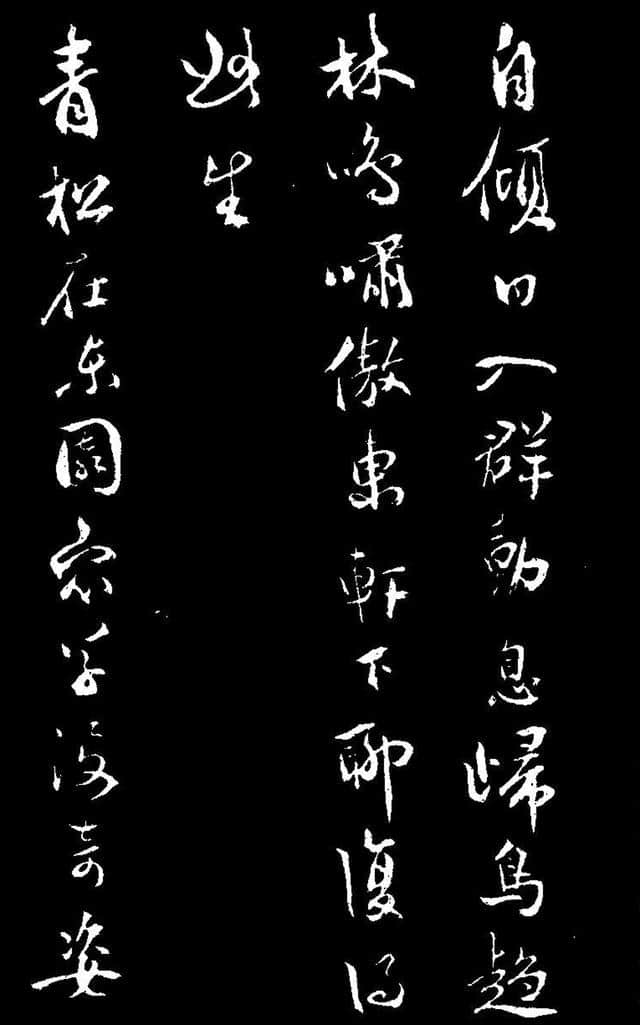 自傾日入群動息歸鳥趨
林鳴嘯傲東軒下聊復得
此生
青松在東園眾草沒奇姿